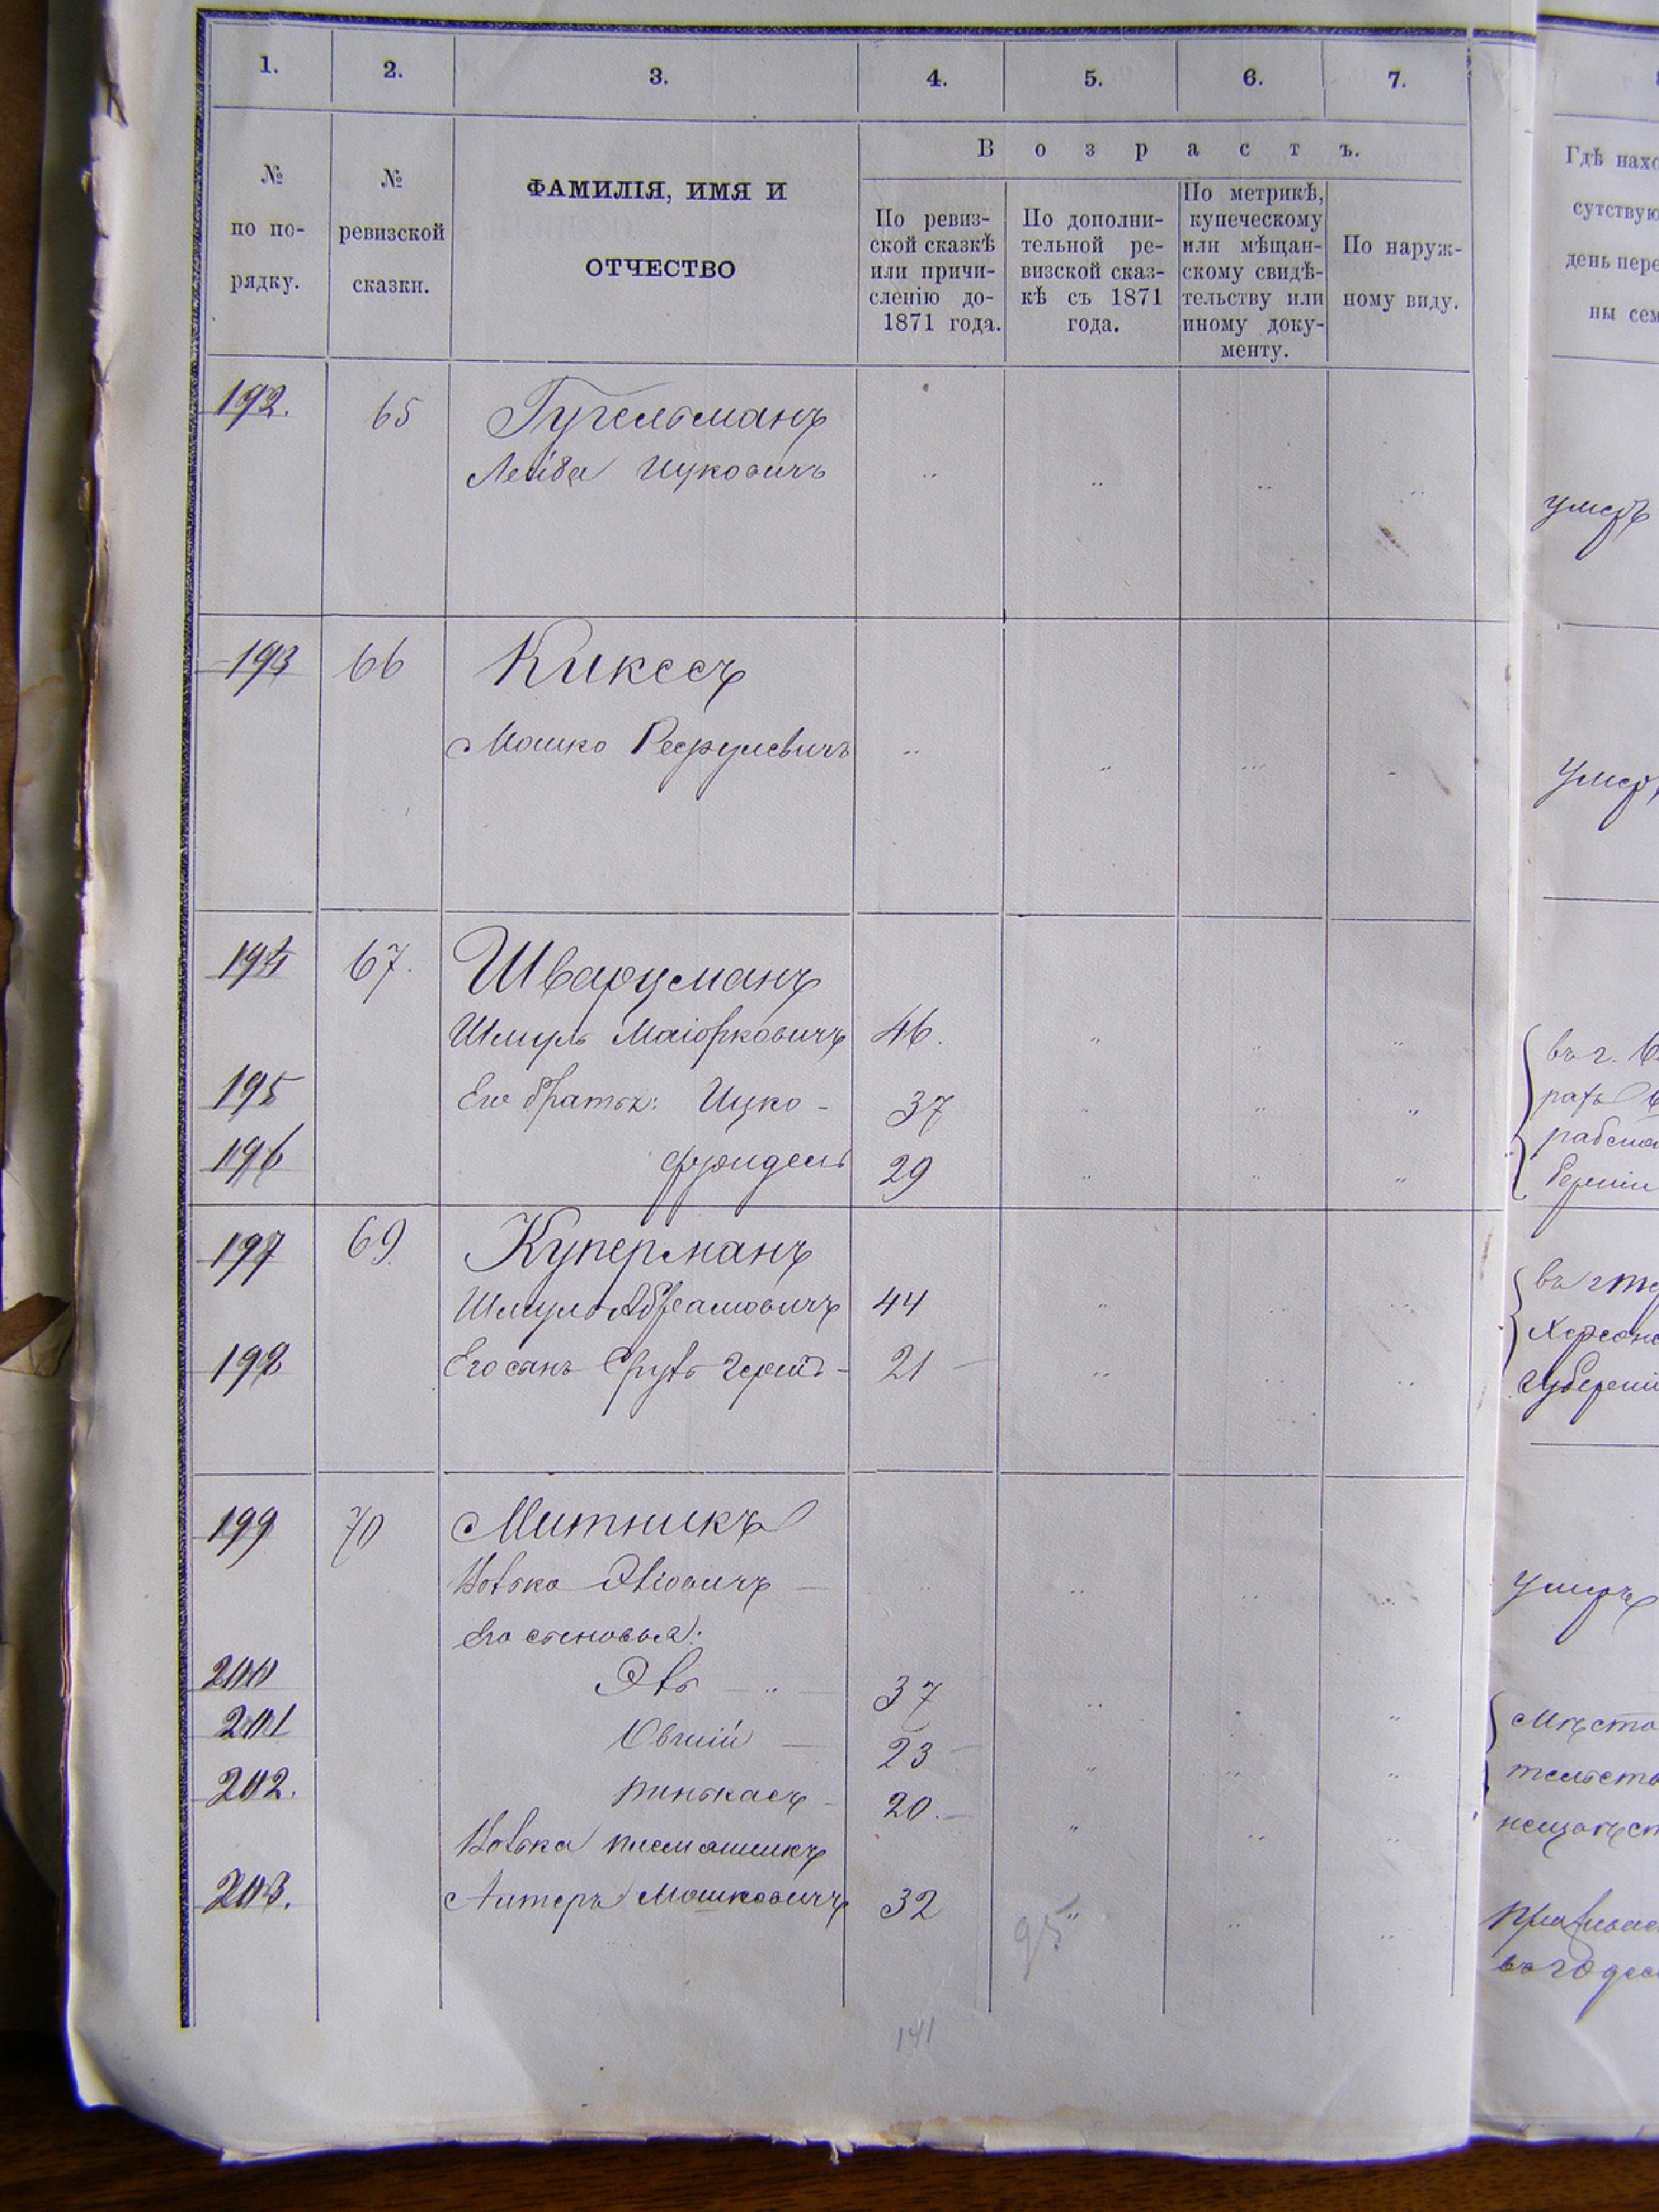 1. 2. 3. 4. 5. 6. 7.
№ по по-рядку.
№ ревизской сказки.
ФАМИЛІЯ, ИМЯ И
ОТЧЕСТВО
Возрастъ.
По ревиз-
ской сказкѣ
или причи-
сленію до-
1871 года.
По дополни-
тельной ре-
визской сказ-
кѣ съ 1871
года.
По метрикѣ,
купеческому
или мѣщан-
скому свидѣ-
тельству или
иному доку-
менту.
По наруж-
ному виду.
Гдѣ нахо
сутствую
день пере
ны сем
192. 65 Гугельманъ
Лейба Ицковичъ
умеръ
193 66 Киксесъ
Мошко
умеръ
194 67. Шварцманъ
Шмуль Маіорковичъ 46.
195 Его братья: Ицко - 37
196 Фроидель 29
197 69. Куперманъ
Шмуль Абрамовичъ 44
198 Его сынъ 21
Херсонс
губерніи
199 70 Митникъ
умеръ
Его сыновья:
200 37
201 Овшій 23
202. Пинькасъ 20.
племянникъ
203. Альтеръ Мошковичъ 32
95
141